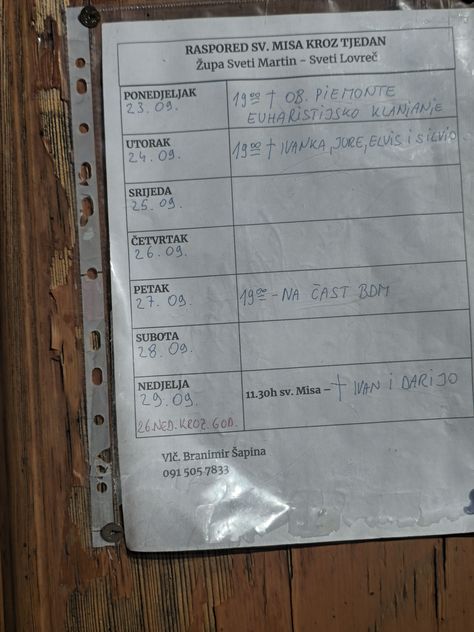 RASPORED SV. MISA KROZ TJEDAN
Župa Sveti Martin – Sveti Lovreč
PONEDJELJAK
23.09.
19ºº † OB. PIEMONTE
EUHARISTIJSKO KLANJANJE
UTORAK
24.09.
19ºº † IVANKA, JURE, ELVIS I SILVIO
SRIJEDA
25.09.
ČETVRTAK
26.09.
PETAK
27.09.
19ºº - NA ČAST BDM
SUBOTA
28.09.
NEDJELJA
29.09.
26.NED.KROZ.GOD.
11.30h sv. Misa – † IVAN I DARIJO
Vlč. Branimir Šapina
091 505 7833